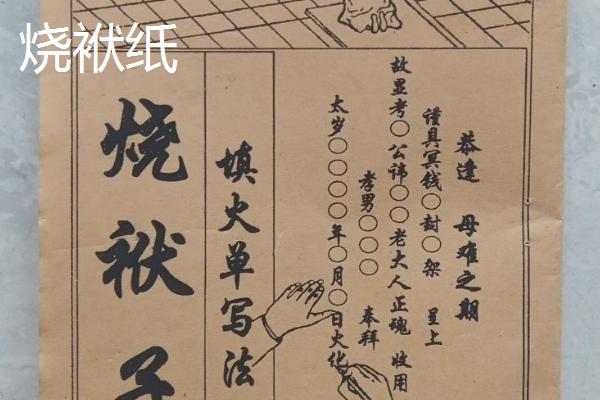 烧袱纸
恭逢 母难之期
谨具冥钱○封○架 呈上
故显考○公讳○○老大人正魂 收用
孝男○○○ 奉拜
太岁○○○○年○月○日火化
填火单写法
烧袱子